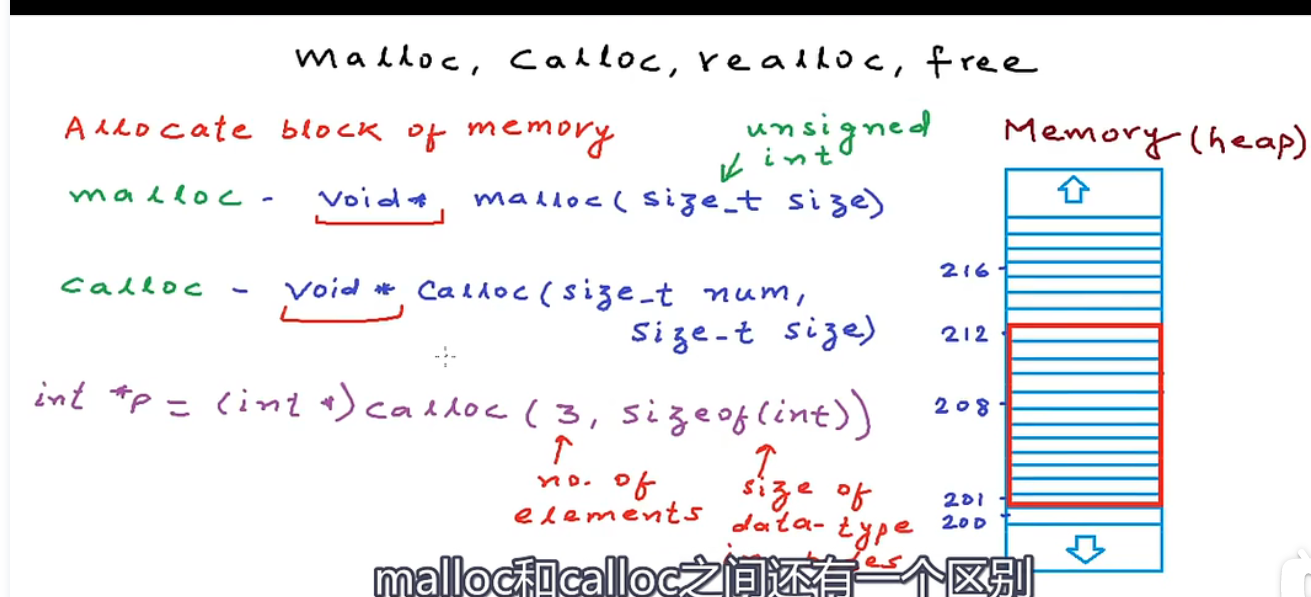 malloc, calloc, realloc, free
Allocate block of memory
unsigned
int
Memory (heap)
malloc - void* malloc(size_t size)
216
calloc - void * calloc(size_t num,
size_t size)
212
int *p = (int *) calloc (3, sizeof(int))
208
no. of
elements
size of
data-type
201
200
malloc和calloc之间还有一个区别